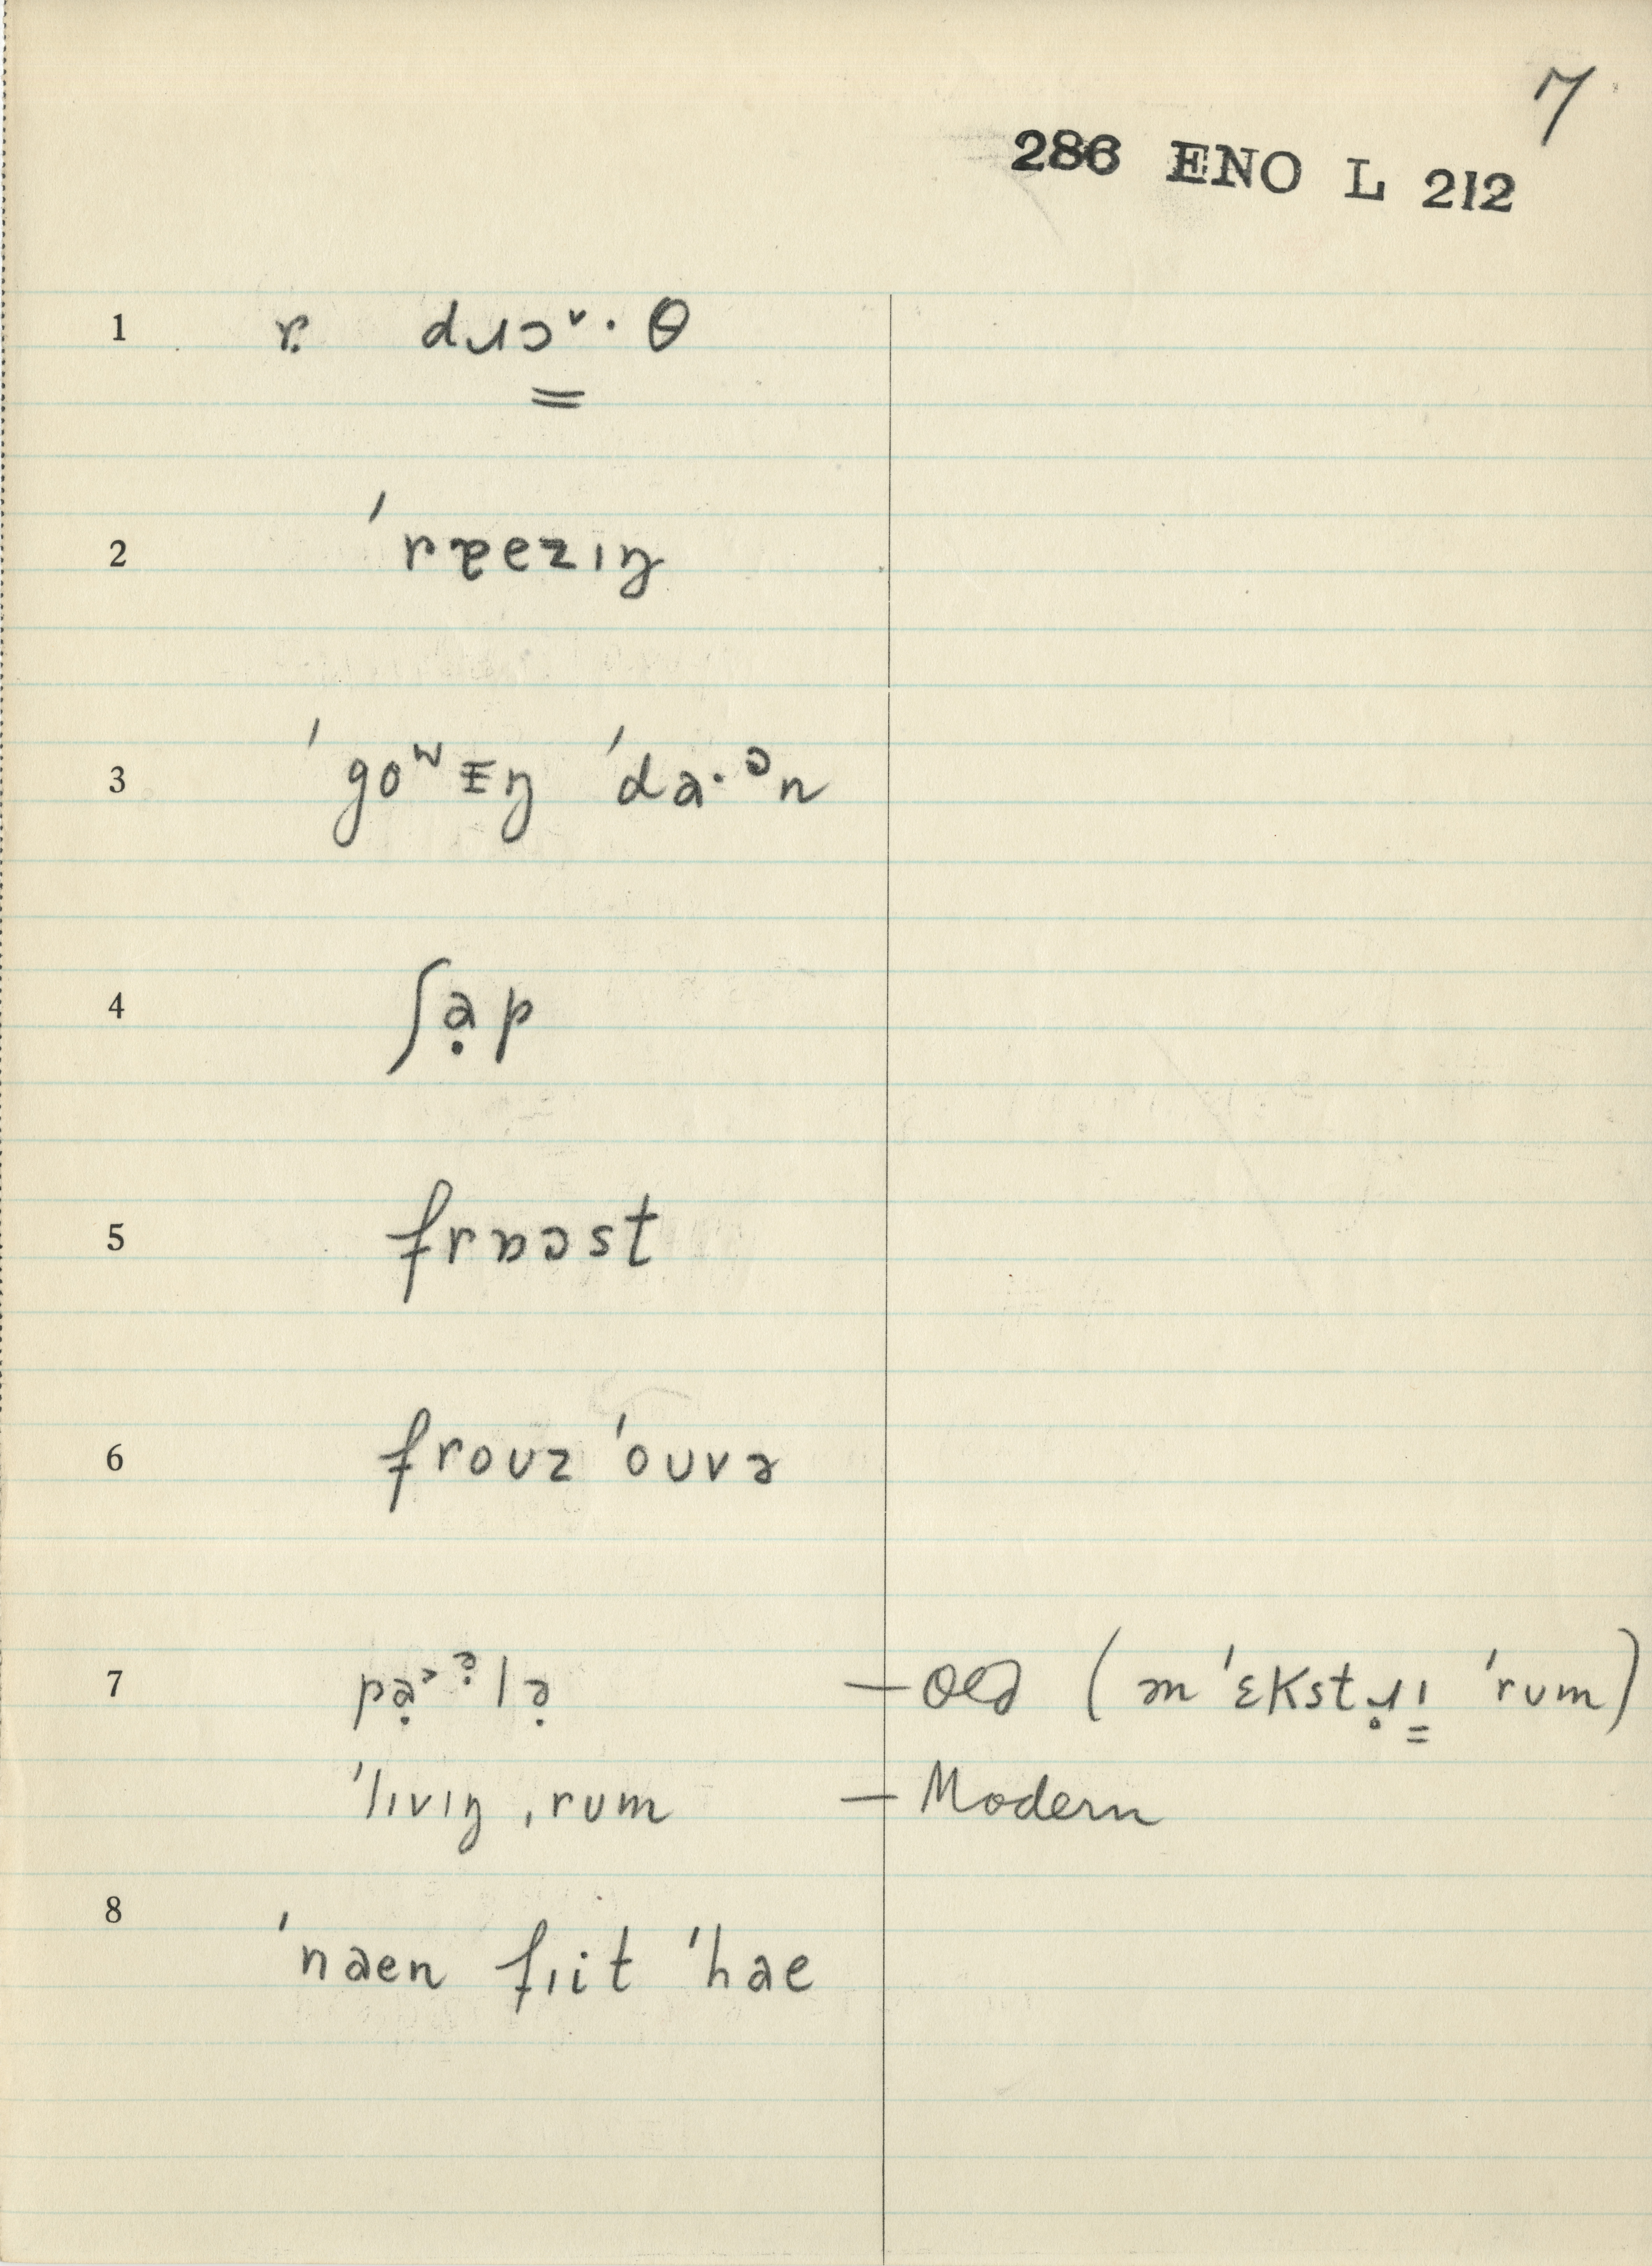 7
286 ENO L 212
1 ɐ dɹɔᵛ·θ
2 ˈrɐezɪŋ
3 ˈgoʷɪŋ ˈda·ᵊn
4 ʃạp
5 frɒɔst
6 frouz ˈouvə
7 pạ˃ᵊ̣lə̣ — Old (ən ˈɛkstɹ̣ɪ̳ ˈrum)
ˈlɪvɪŋ ˌrum — Modern
8 ˈnaen fɪit ˈhae